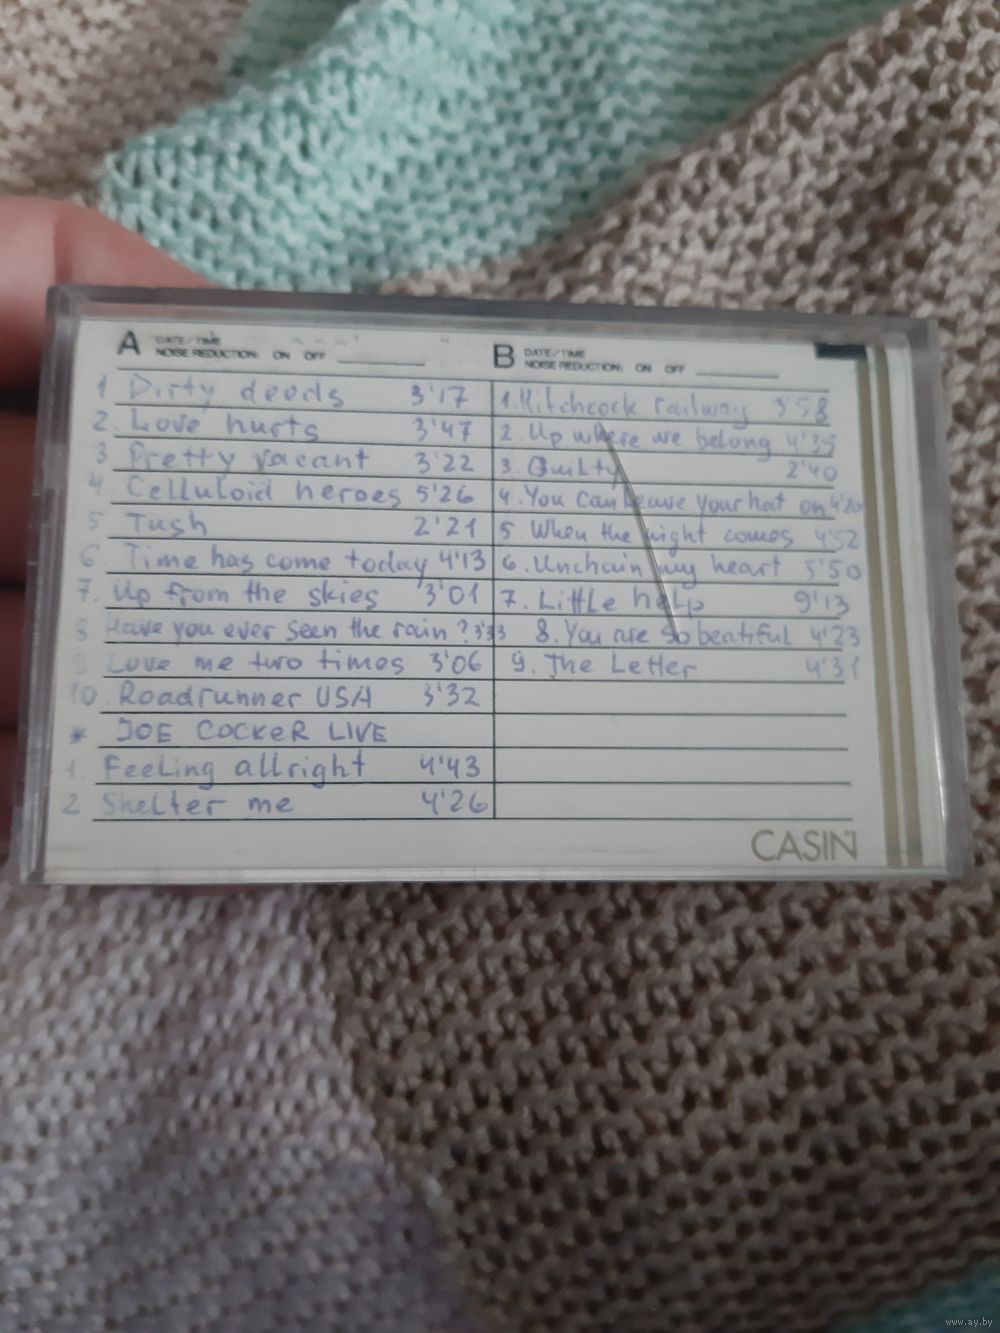 A DATE/TIME
NOISE REDUCTION: ON OFF
1 Dirty deeds 3'17
2. Love hurts 3'47
3 Pretty vacant 3'22
4 Celluloid heroes 5'26
5 Tush 2'21
6 Time has come today 4'13
7. Up from the skies 3'01
8 Have you ever seen the rain? 3'33
9 Love me two times 3'06
10 Roadrunner USA 3'32
* JOE COCKER LIVE
1. Feeling allright 4'43
2 Shelter me 4'26
B DATE/TIME
NOISE REDUCTION: ON OFF
1. Hitchcock railway 3'58
2. Up where we belong 4'35
3. Guilty 2'40
4. You can leave your hat on 4'20
5. When the night comes 4'52
6. Unchain my heart 5'50
7. Little help 9'13
8. You are so beatiful 4'23
9. The Letter 4'31
CASIN
www.ay.by